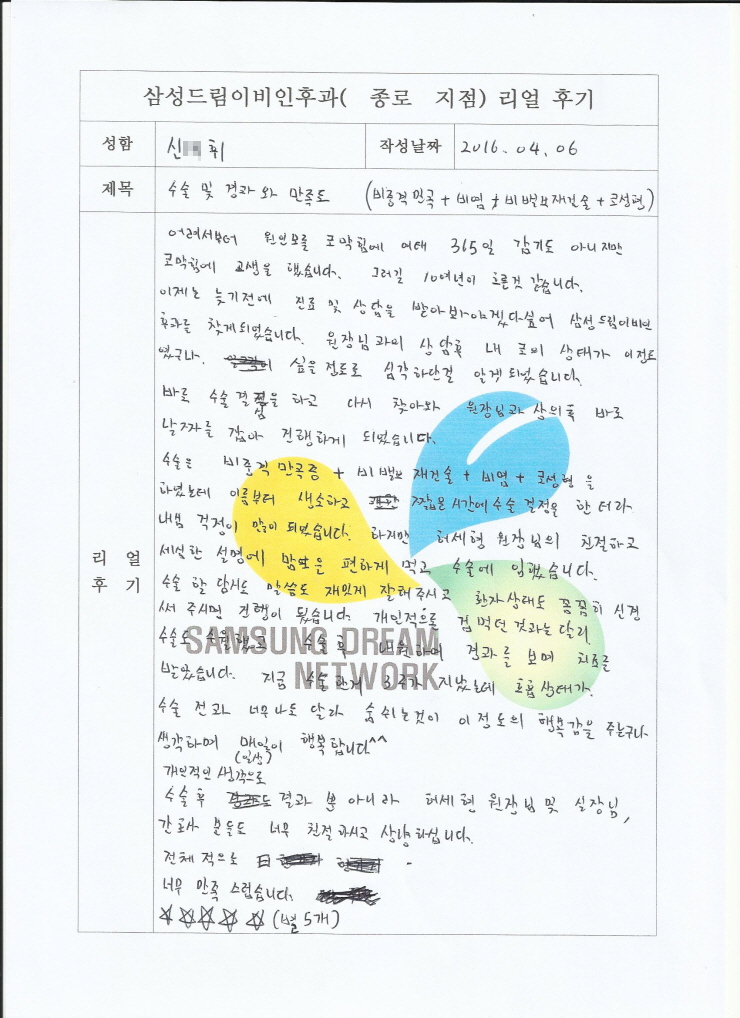 삼성드림이비인후과( 종로 지점) 리얼 후기
성함 신 휘 작성날짜 2016. 04. 06
제목 수술 및 경과와 만족도 (비중격만곡 + 비염 + 비밸브재건술 + 코성형)
리얼 후기
어려서부터 원인모를 코막힘에 여태 365일 감기도 아니지만
코막힘에 고생을 했습니다. 그러길 10여년이 흐른것 같습니다.
이제는 늦기전에 진료 및 상담을 받아봐야겠다싶어 삼성드림이비인
후과를 찾게되었습니다. 원장님과의 상담후 내 코의 상태가 이정도
였구나. 싶을정도로 심각하단걸 알게 되었습니다.
바로 수술결정을 하고 다시 찾아와 원장님과 상의후 바로
날짜를 잡아 진행하게 되었습니다.
수술은 비중격만곡증 + 비밸브재건술 + 비염 + 코성형 을
하였는데 이름부터 생소하고 짧은 시간에 수술 결정을 한 터라
내심 걱정이 많이 되었습니다. 하지만 허세형 원장님의 친절하고
세심한 설명에 맘을 편하게 먹고 수술에 임했습니다.
수술 할 당시도 말씀도 재밌게 잘해주시고 환자상태도 꼼꼼히 신경
써 주시며 진행이 됬습니다. 개인적으로 겁먹던 것과는 달리
수술도 수월했고 수술후 내원하여 경과를 보며 치료를
받았습니다. 지금 수술한게 3주가 지났는데 호흡상태가
수술 전과 너무나도 달라 숨쉬는것이 이정도의 행복감을 주는구나
생각하며 매일이 행복합니다^^
(일상)
개인적인 생각으로
수술후 결과 뿐 아니라 허세현 원장님 및 실장님,
간호사 분들도 너무 친절하시고 상냥하십니다.
전체적으로
너무 만족스럽습니다.
☆☆☆☆☆ (별 5개)
SAMSUNG DREAM
NETWORK